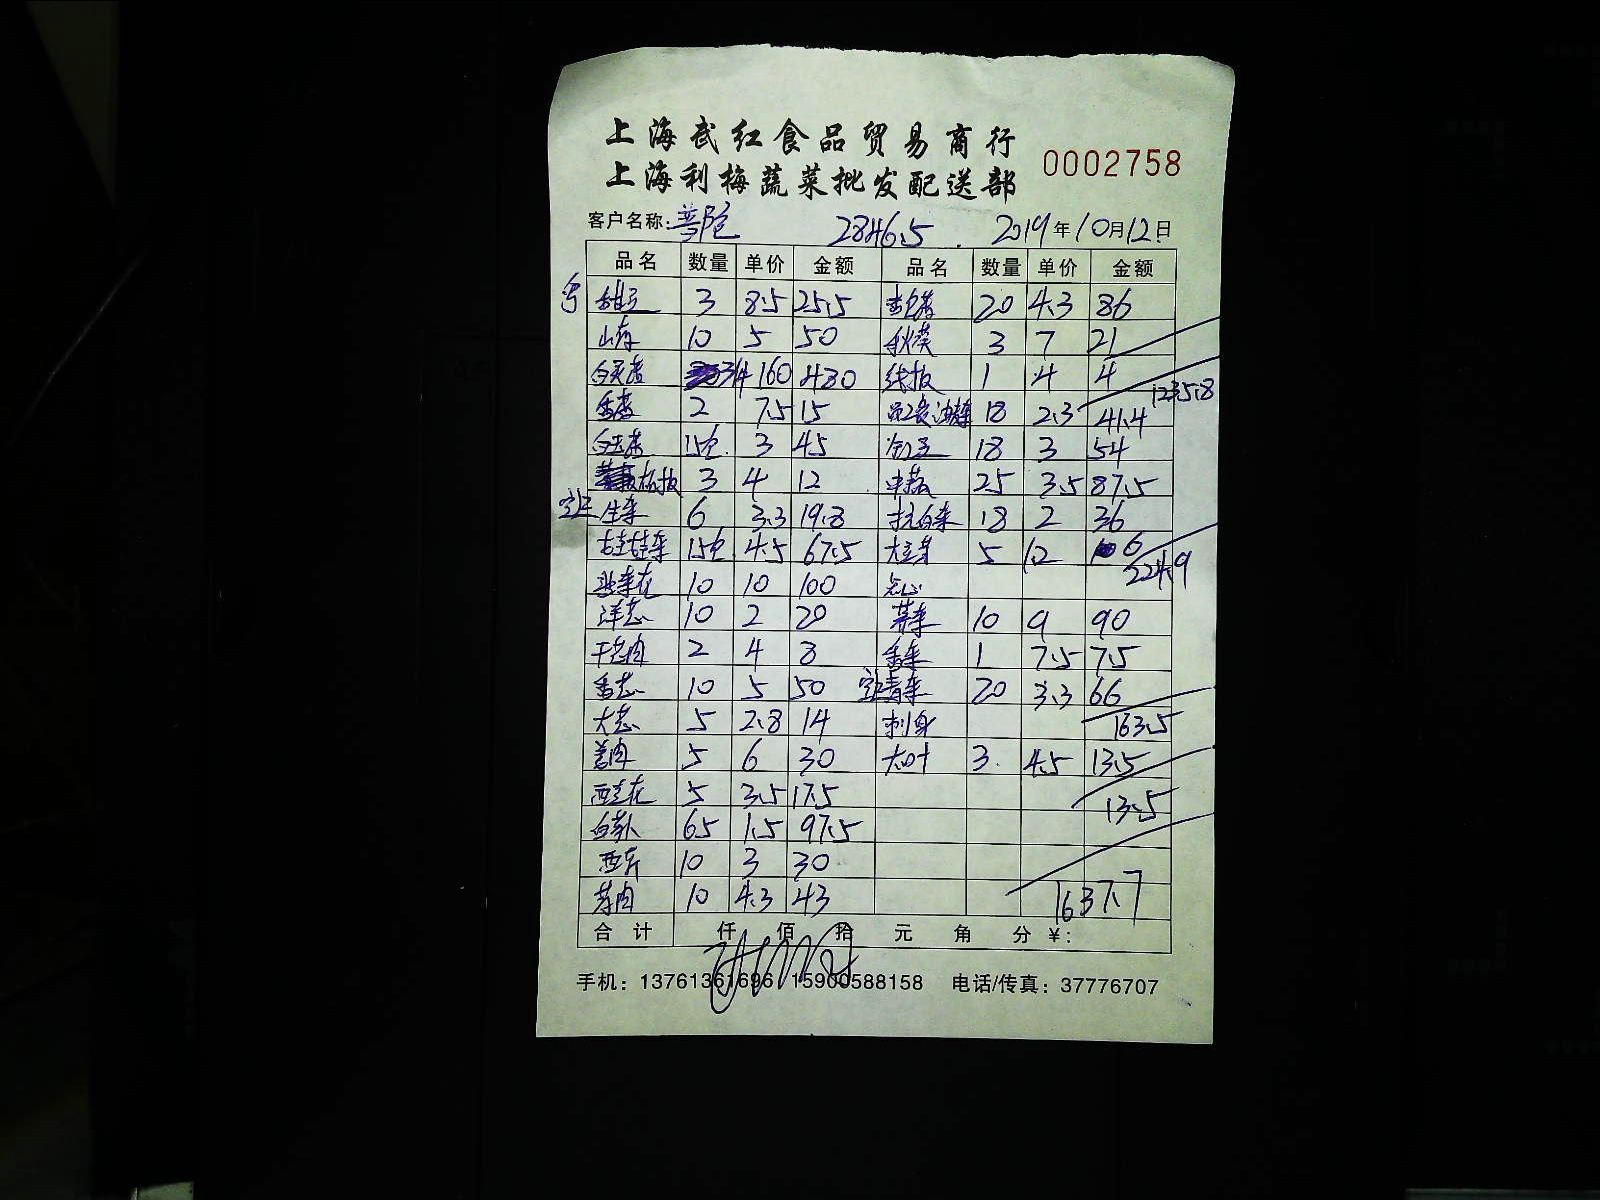 上海武红食品贸易商行
上海利梅蔬菜批发配送部
0002758
客户名称: 普陀 2846.5 2019年10月12日
品名 数量 单价 金额 品名 数量 单价 金额
3 8.5 25.5 20 4.3 86
山药 10 5 50 秋葵 3 7 21
白灵菇 3件 160 480 线椒 1 4 4
1235.8
香菜 2 7.5 15 18 2.3 41.4
白玉菇 15包 3 45 18 3 54
杭椒 3 4 12 25 3.5 87.5
生菜 6 3.3 19.8 杭白菜 18 2 36
娃娃菜 15包 4.5 67.5 大豆芽 5 1.2 6
224.9
10 10 100 点心
洋葱 10 2 20 10 9 90
2 4 8 香菜 1 7.5 7.5
香葱 10 5 50 青菜 20 3.3 66
大葱 5 2.8 14 刺身 163.5
姜肉 5 6 30 大叶 3 4.5 13.5
西兰花 5 3.5 17.5 13.5
白萝卜 65 1.5 97.5
西芹 10 3 30
10 4.3 43 1637.7
合计 仟 佰 拾 元 角 分 ¥:
手机: 13761361696 15900588158 电话/传真: 37776707